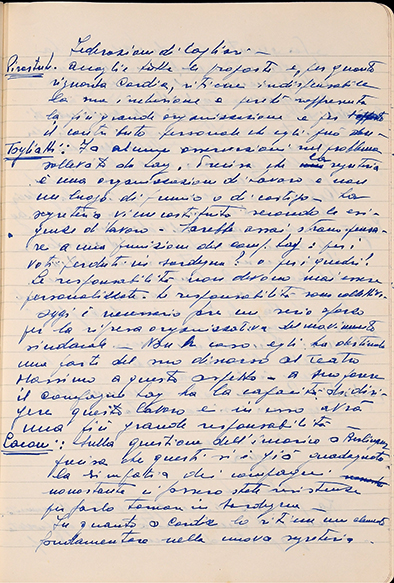 Federazione di Cagliari. —
Pirastu: accoglie tutte le proposte e, per quanto
riguarda Cardia, ritiene indispensabile
la sua inclusione e perché rappresenta
la più grande organizzazione e per
il contributo personale che egli può dare.
Togliatti: Fa alcune osservazioni sul problema
sollevato da Lay. Precisa che la segreteria
è una organizzazione di lavoro e non
un luogo di premio o di castigo. La
segreteria viene costituita secondo le esi-
genze di lavoro. Sarebbe assai strano pensa-
re a una punizione del comp. Lay: e per i
voti perduti in Sardegna? o per i quadri?
Le responsabilità non devono mai essere
personalizzate. Le responsabilità sono collettive.
Oggi è necessario fare un serio sforzo
per la ripresa organizzativa del movimento
sindacale. Non a caso egli ha dedicato
una parte del suo discorso al teatro
Massimo a questo aspetto. A suo parere
il compagno Lay ha la capacità di diri-
gere questo lavoro e in esso avrà
una più grande responsabilità.
Laconi: Sulla questione dell'incarico a Berlinguer
precisa che questi si è già guadagnata
la simpatia dei compagni
nonostante ci fossero state resistenze
per farlo tornare in Sardegna.
In quanto a Cardia lo ritiene un elemento
fondamentale nella nuova segreteria.